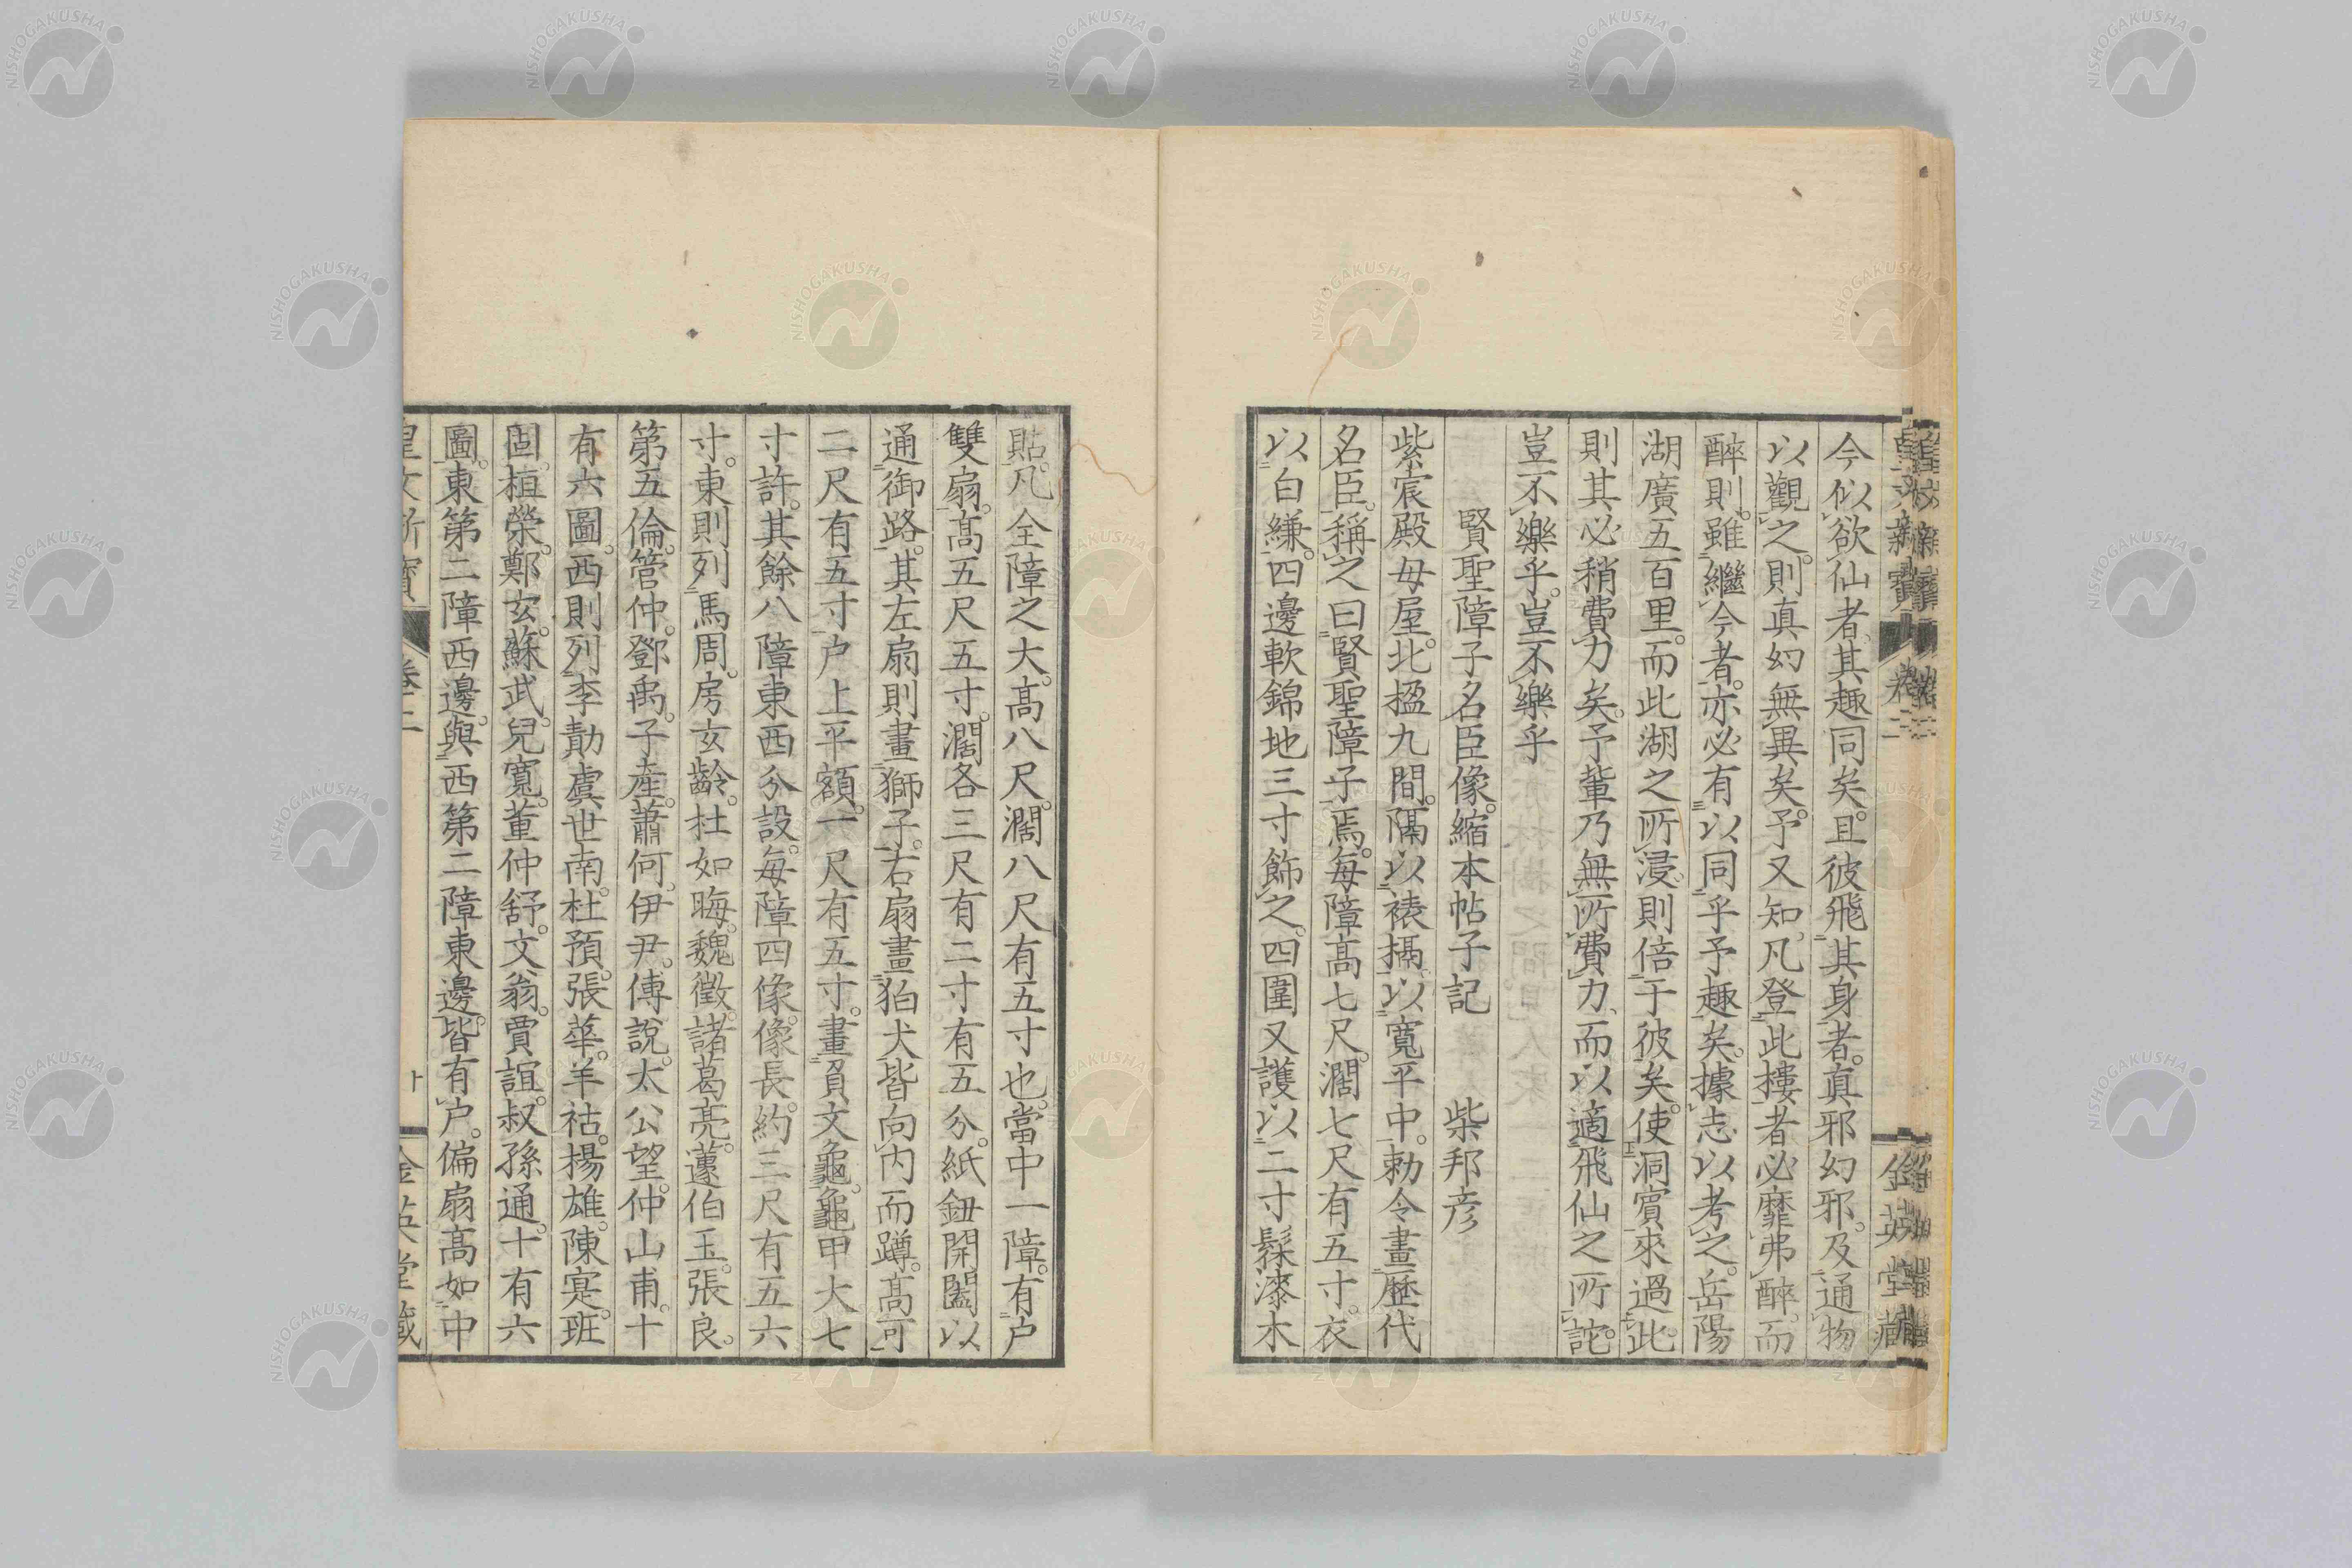 今似欲仙者其趣同矣。且彼飛其身者。真邪幻邪。及通物
以觀之。則真幻無異矣。予又知。凡登此樓者必靡弗醉。而
醉則。雖繼今者。亦必有以同乎予趣矣。據志以考之。岳陽
湖廣五百里。而此湖之所浸。則倍于彼矣。使洞賓來過此。
則其必稍費力矣。予輩乃無所費力、而以適飛仙之所詫。
豈不樂乎。豈不樂乎
賢聖障子名臣像。縮本帖子記　柴邦彦
紫宸殿母屋。北楹九間。隔以裱槅。以寬平中。勅令畫歷代
名臣。稱之曰賢聖障子焉。每障高七尺。濶七尺有五寸。衣
以白縑。四邊軟錦地三寸飾之。四圍又護以二寸髹漆木
貼。凡全障之大。高八尺。濶八尺有五寸也。當中一障。有戶
雙扇。高五尺五寸。濶各三尺有二寸有五分。紙鈕開闔以
通御路。其左扇則畫獅子。右扇畫狛犬皆向內而蹲。高可
二尺有五寸戶上平額。一尺有五寸。畫負文龜。龜甲大七
寸許。其餘八障東西分設。每障四像。像長。約三尺有五六
寸。東則列馬周。房玄齡。杜如晦。魏徵。諸葛亮。蘧伯玉。張良。
第五倫。管仲。鄧禹。子產。蕭何。伊尹。傅說。太公望。仲山甫。十
有六圖。西則列李勣虞世南。杜預。張華。羊祜。楊雄。陳寔。班
固。桓榮。鄭玄。蘇武。兒寬。董仲舒。文翁。賈誼。叔孫通。十有六
圖。東第二障西邊。與西第二障東邊。皆有戶。偏扇高如中
皇文新寶　卷二　十　金英堂藏